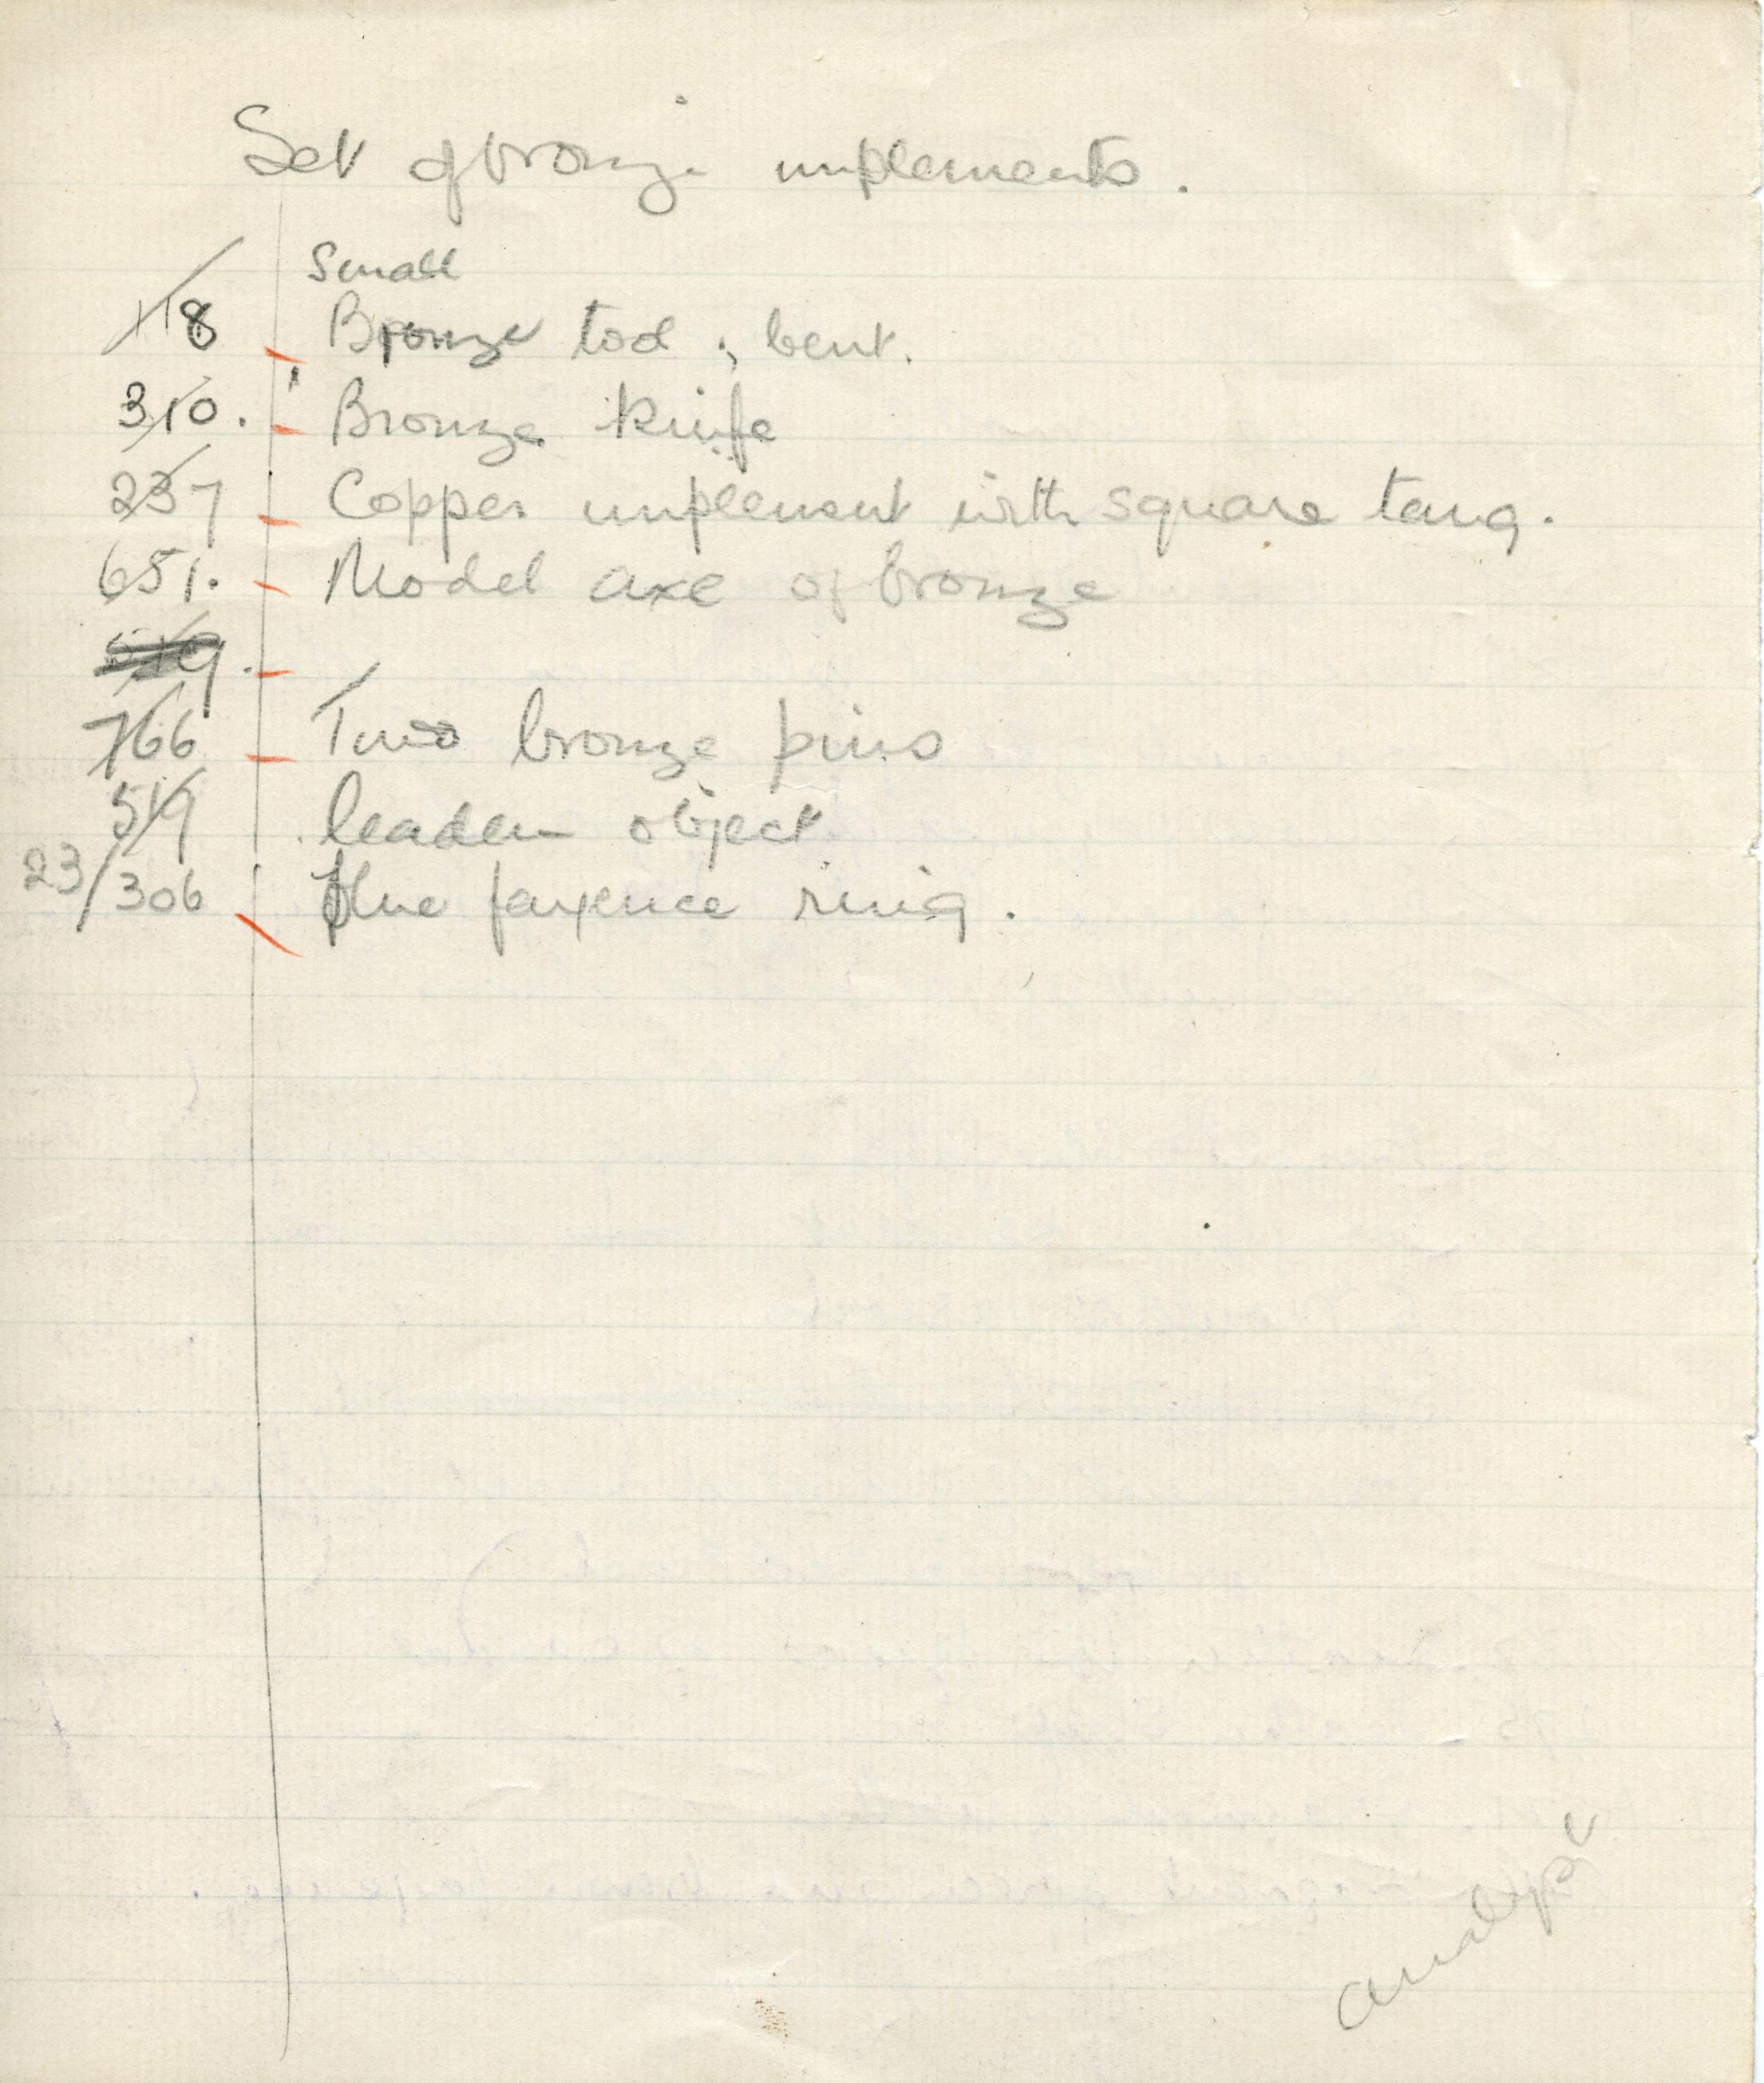 Set of bronze implements.
Small
118 Bronze tool ; bent.
310. Bronze knife
237 Copper implement with square tang.
651. Model axe of bronze
519.
766 Two bronze pins
519 leaden object
23/306 blue fayence ring.